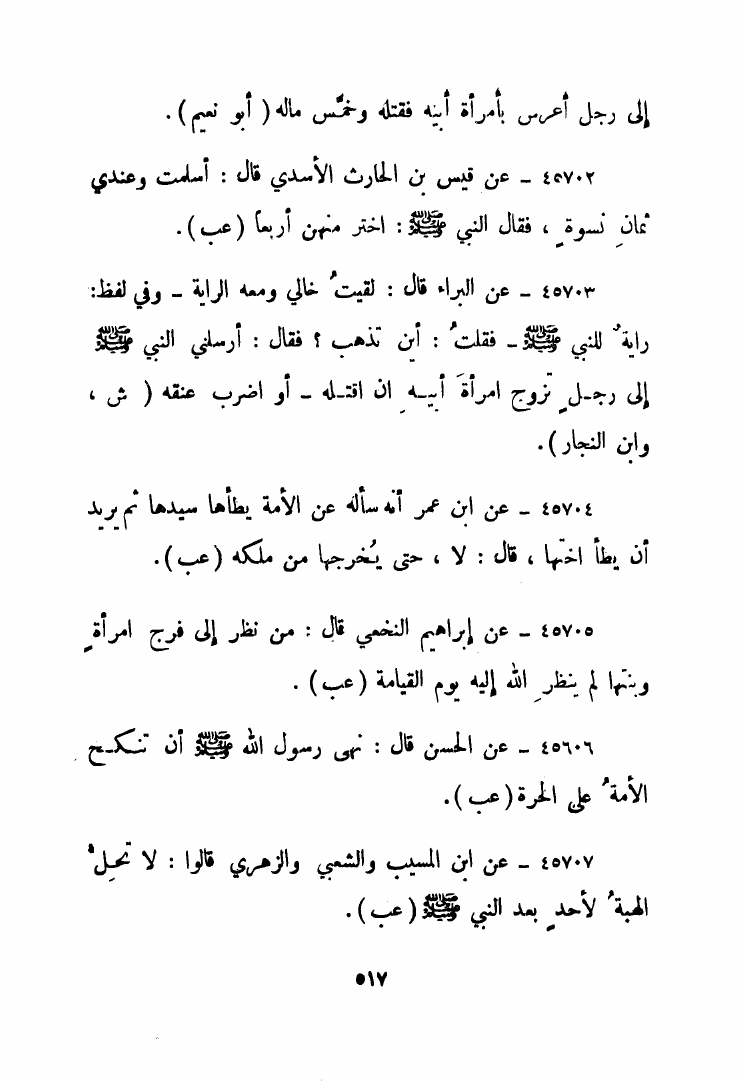 إلى رجل أعرس بأمرأة أبيه فقتله وخمَّس ماله ( أبو نعيم ) .
٤٥٧٠٢ ـ عن قيس بن الحارث الأسدي قال : أسلمت وعندي
ثمانِ نسوةٍ ، فقال النبي ﷺ : اختر منهن أربعاً ( عب ) .
٤٥٧٠٣ ـ عن البراء قال : لقيتُ خالي ومعه الراية ـ وفي لفظ:
رايةٌ للنبي ﷺ ـ فقلتُ : أين تذهب ؟ فقال : أرسلني النبي ﷺ
إلى رجـلٍ تزوج امرأةَ أبيـهِ ان اقتـله ـ أو اضرب عنقه ( ش ،
وابن النجار ) .
٤٥٧٠٤ ـ عن ابن عمر أنه سأله عن الأمة يطأها سيدها ثم يريد
أن يطأ اختها ، قال : لا ، حتى يُخرجها من ملكه ( عب ) .
٤٥٧٠٥ ـ عن إبراهيم النخعي قال : من نظر إلى فرج امرأةٍ
وبنتها لم ينظرِ الله إليه يوم القيامة ( عب ) .
٤٥٦٠٦ ـ عن الحسن قال : نهى رسول الله ﷺ أن تنكـح
الأمةُ على الحرة ( عب ) .
٤٥٧٠٧ ـ عن ابن المسيب والشعبي والزهري قالوا : لا تحِلُ
الهبةُ لأحدٍ بعد النبي ﷺ ( عب ) .
٥١٧